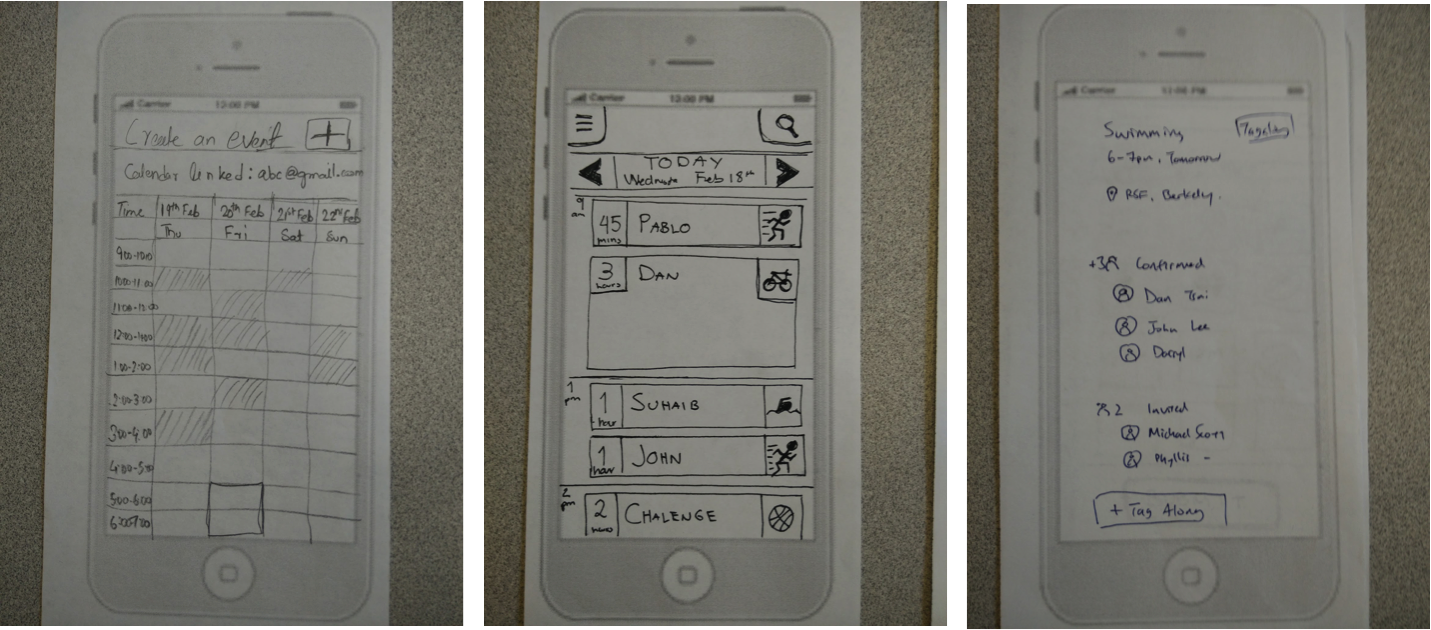 Carrier 12:00 PM
Create an event +
Calendar linked: abc@gmail.com
Time 19th Feb 20th Feb 21st Feb 22nd Feb
Thu Fri Sat Sun
9:00-10:00
10:00-11:00
11:00-12:00
12:00-1:00
1:00-2:00
2:00-3:00
3:00-4:00
4:00-5:00
5:00-6:00
6:00-7:00
Carrier 12:00 PM
TODAY
Feb 18th
9 am
45 mins PABLO
3 hours DAN
1 pm
1 hour SUHAIB
1 hour JOHN
2 pm
2 CHALENGE
Carrier 12:00 PM
Swimming
6-7pm, Tomorrow
RSF, Berkeley.
+3 Confirmed
Dan Tsai
John Lee
Darryl
2 Invited
Michael Scott
Phyllis -
+ Tag Along